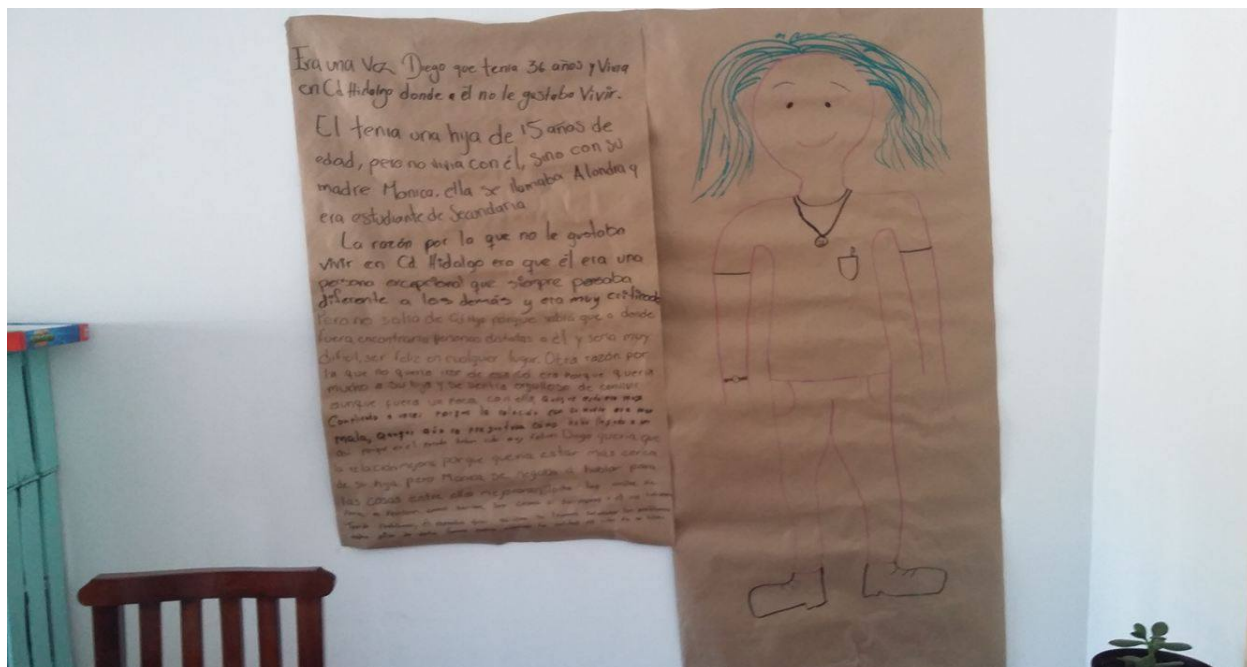 Era una Vez Diego que tenia 36 años y Vivia
en Cd Hidalgo donde a él no le gustaba Vivir.
El tenia una hija de 15 años de
edad, pero no vivia con él, sino con su
madre Monica. ella se llamaba Alondra y
era estudiante de Secundaria
La razón por la que no le gustaba
vivir en Cd Hidalgo era que él era una
persona excepcional que siempre pensaba
diferente a los demás y era muy criticado
Pero no salia de Cd Hgo porque sabia que a donde
fuera encontraria personas distintas a él y seria muy
dificil, ser feliz en cualquier lugar. Otra razón por
la que no queria irse de esa Cd. era porque queria
mucho a su hija y se sentia orgulloso de convivir
aunque fuera un poco con ella
porque la relación con su era muy
mala, aunque aún se preguntaba cómo
asi porque en el Diego queria que
la relación mejorara porque queria estar más cerca
de su hija pero Monica se negaba a hablar para
las cosas entre ellos